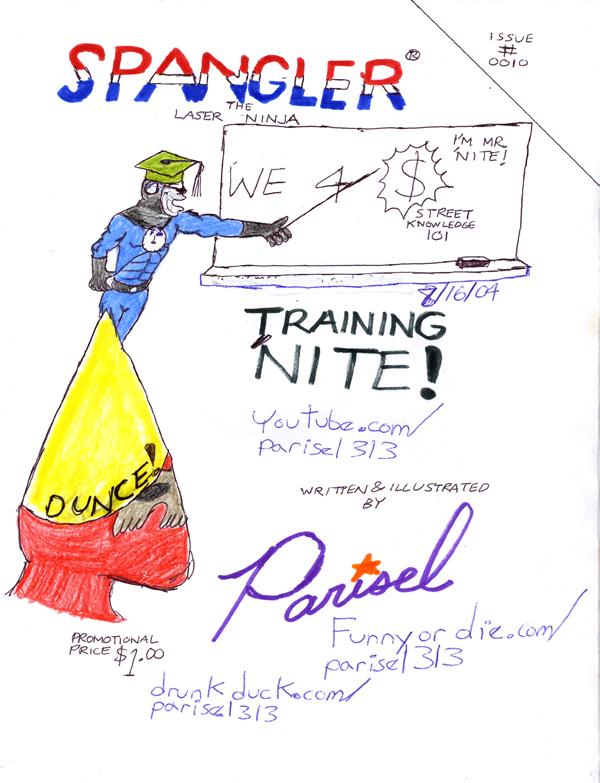 SPANGLER®
THE
LASER NINJA
ISSUE
#
0010
I'M MR.
'NITE!
WE 4 $
STREET
KNOWLEDGE
101
8/16/04
TRAINING
'NITE!
Youtube.com/
parisel313
DUNCE!
WRITTEN & ILLUSTRATED
BY
Parisel
Funnyordie.com/
parisel313
PROMOTIONAL
PRICE $1.00
drunkduck.com/
parisel313